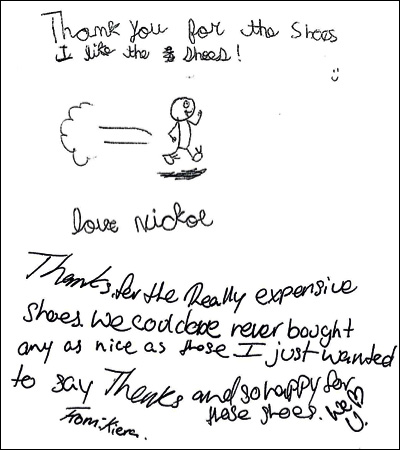 Thank you for the Shoes
I like the shoes!
love Nickoe
Thanks for the Really expensive
shoes. we coulddeve never bought
any as nice as those I just wanted
to say Thenks and so happy for
these shoes. We ♡ U.
From: Kiera.